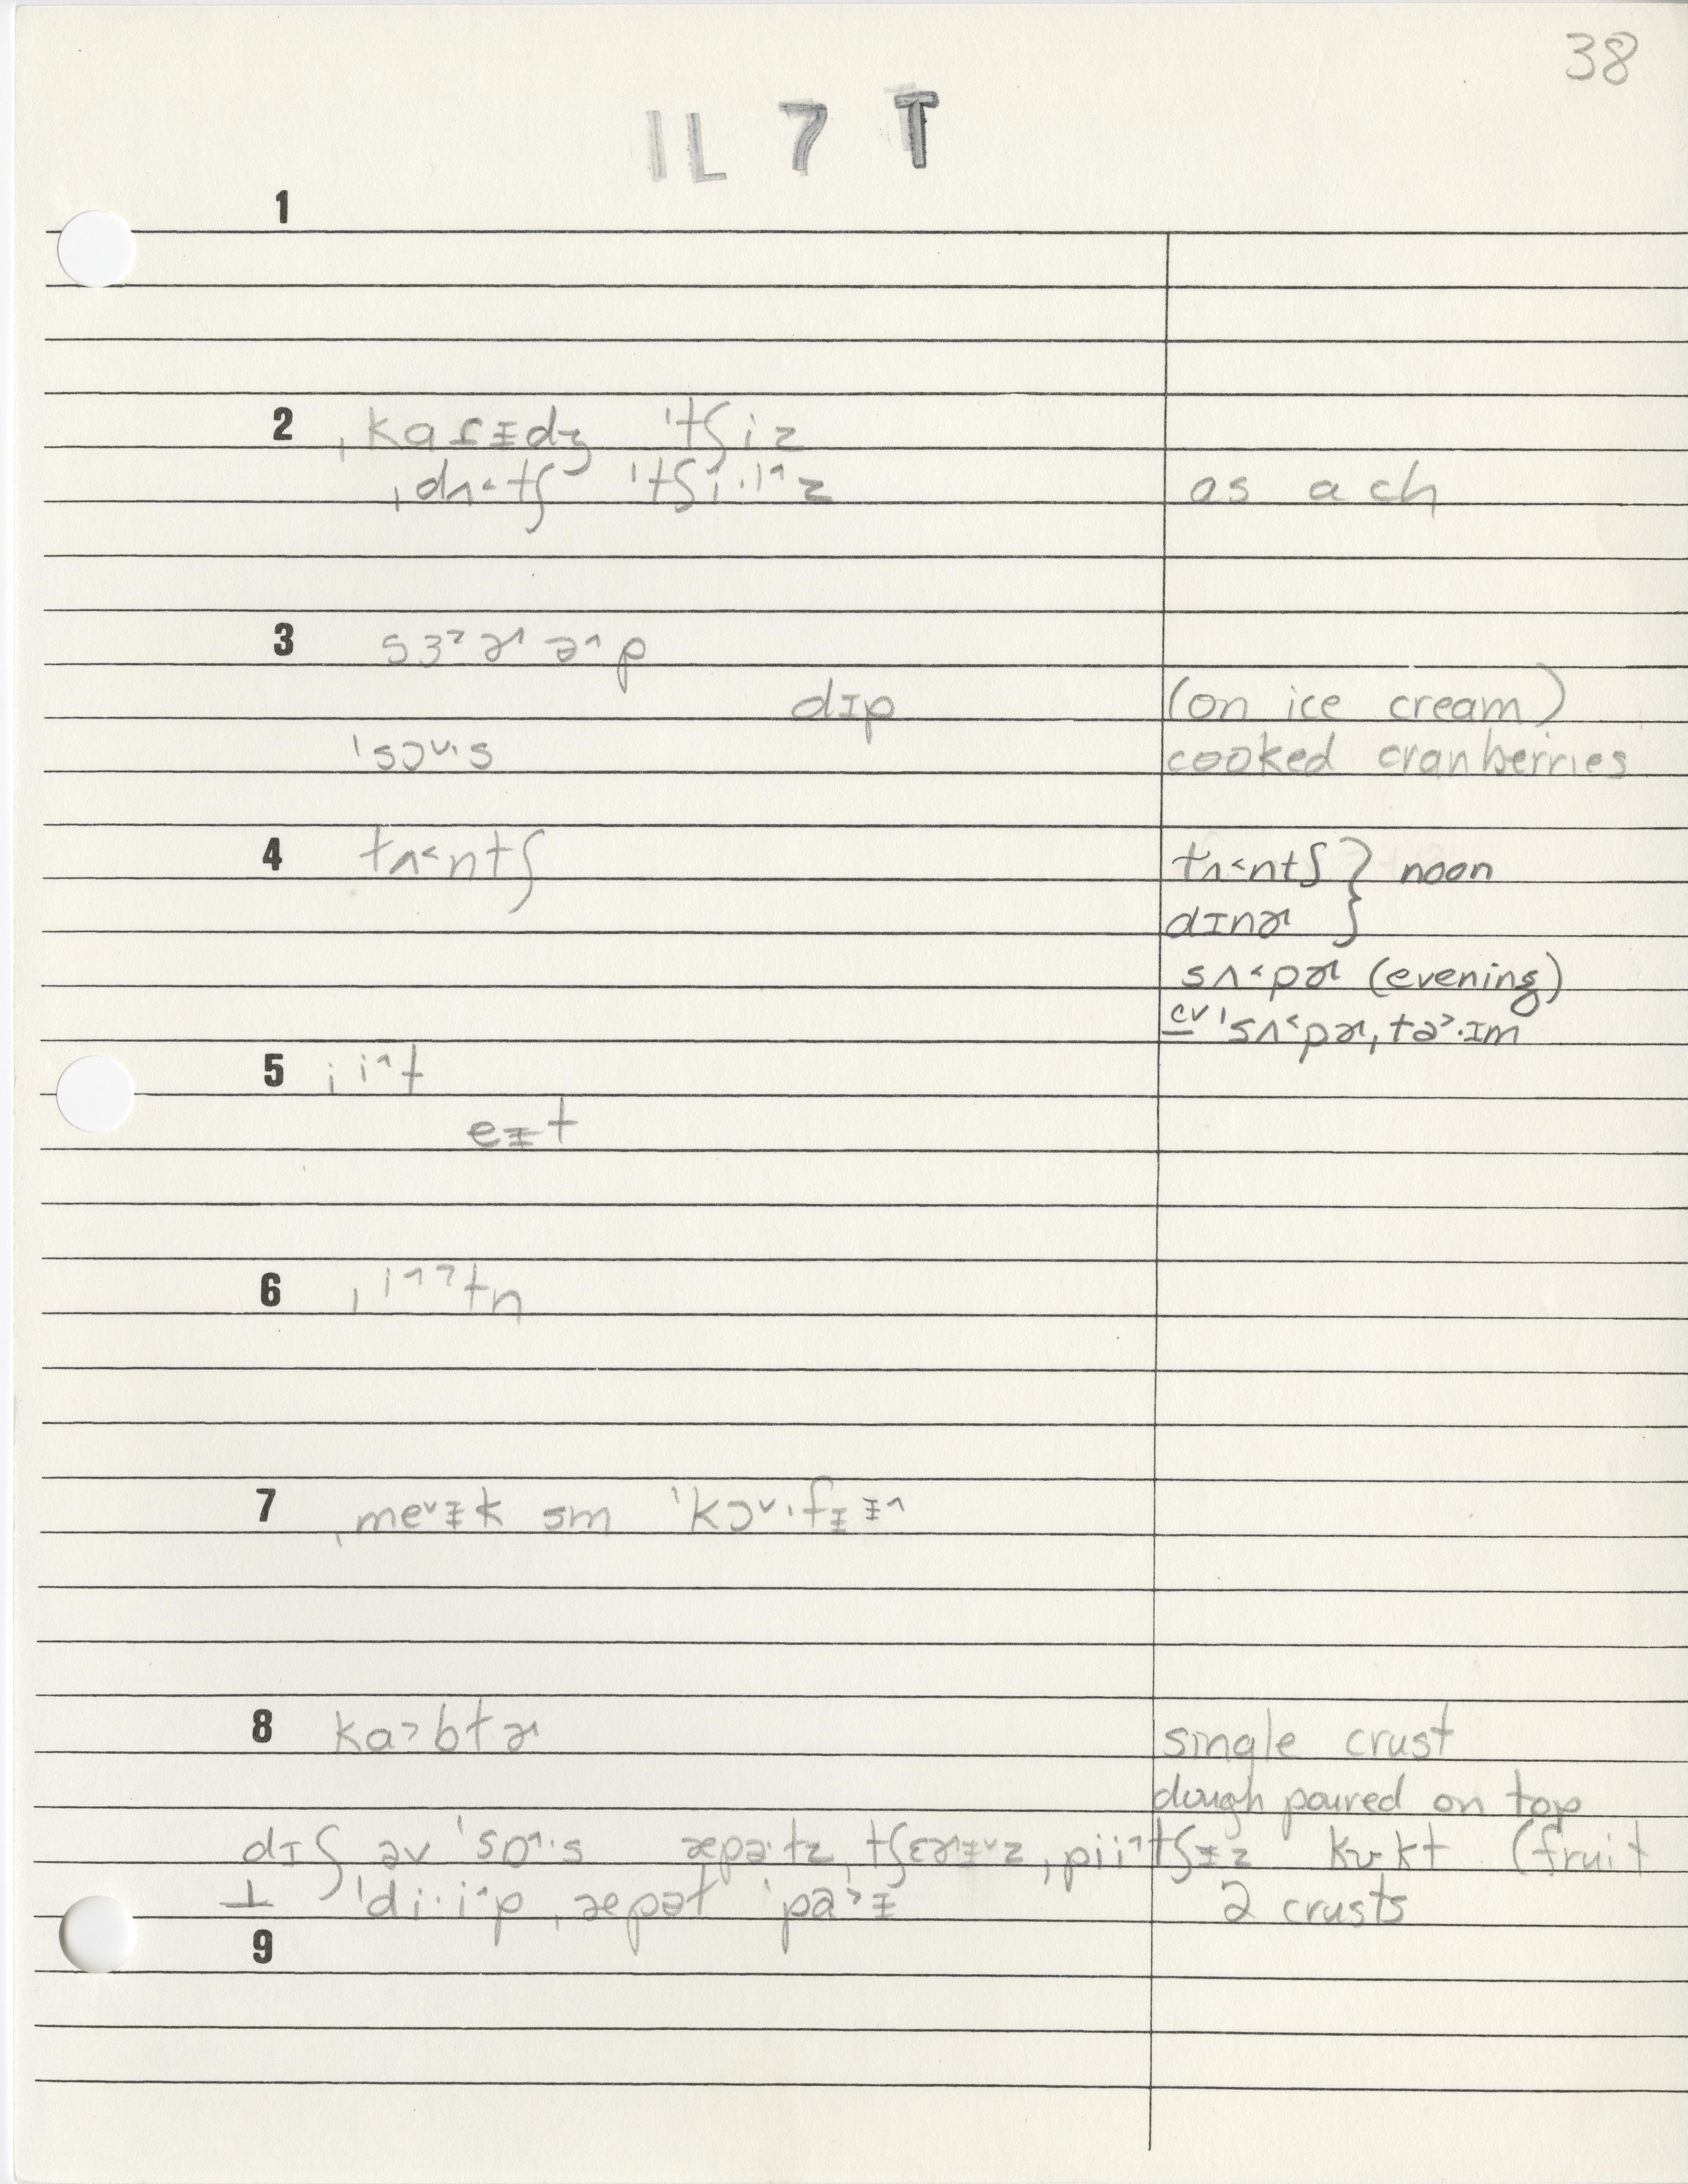 38
IL 7 T
1
2 ˌkaɾᵻdʒ ˈtʃiz
ˌdʌ˂tʃ ˈtʃi·i^z as a ch
3 sɜ˒ɚ ə^p
dɪp (on ice cream)
ˈsɔ˅·s cooked cranberries
4 lʌ˂ntʃ lʌ˂ntʃ } noon
dɪnɚ }
sʌ˂pɚ (evening)
cv ˈsʌ˂pɚˌta˃·ɪm
5 ˌii^t
eᵻt
6 ˌi^˒tn
7 ˌme˅ᵻk sm ˈkɔ˅·fᵻᵻ^
8 ka˃blɚ single crust
dough poured on top
dɪʃ əv ˈsɒ^·s æpəlz, tʃɛɚᵻ˅z, pii^tʃᵻz kʊkt (fruit
⊥ ˈdi·i^pˌæpəl ˈpa˃ᵻ 2 crusts
9